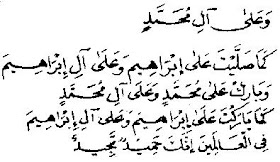 وَعَلَى آلِ مُحَمَّدٍ
كَمَا صَلَّيْتَ عَلَى إِبْرَاهِيمَ وَعَلَى آلِ إِبْرَاهِيمَ
وَبَارِكْ عَلَى مُحَمَّدٍ وَعَلَى آلِ مُحَمَّدٍ
كَمَا بَارَكْتَ عَلَى إِبْرَاهِيمَ وَعَلَى آلِ إِبْرَاهِيمَ
فِي الْعَالَمِينَ إِنَّكَ حَمِيدٌ مَجِيدٌ